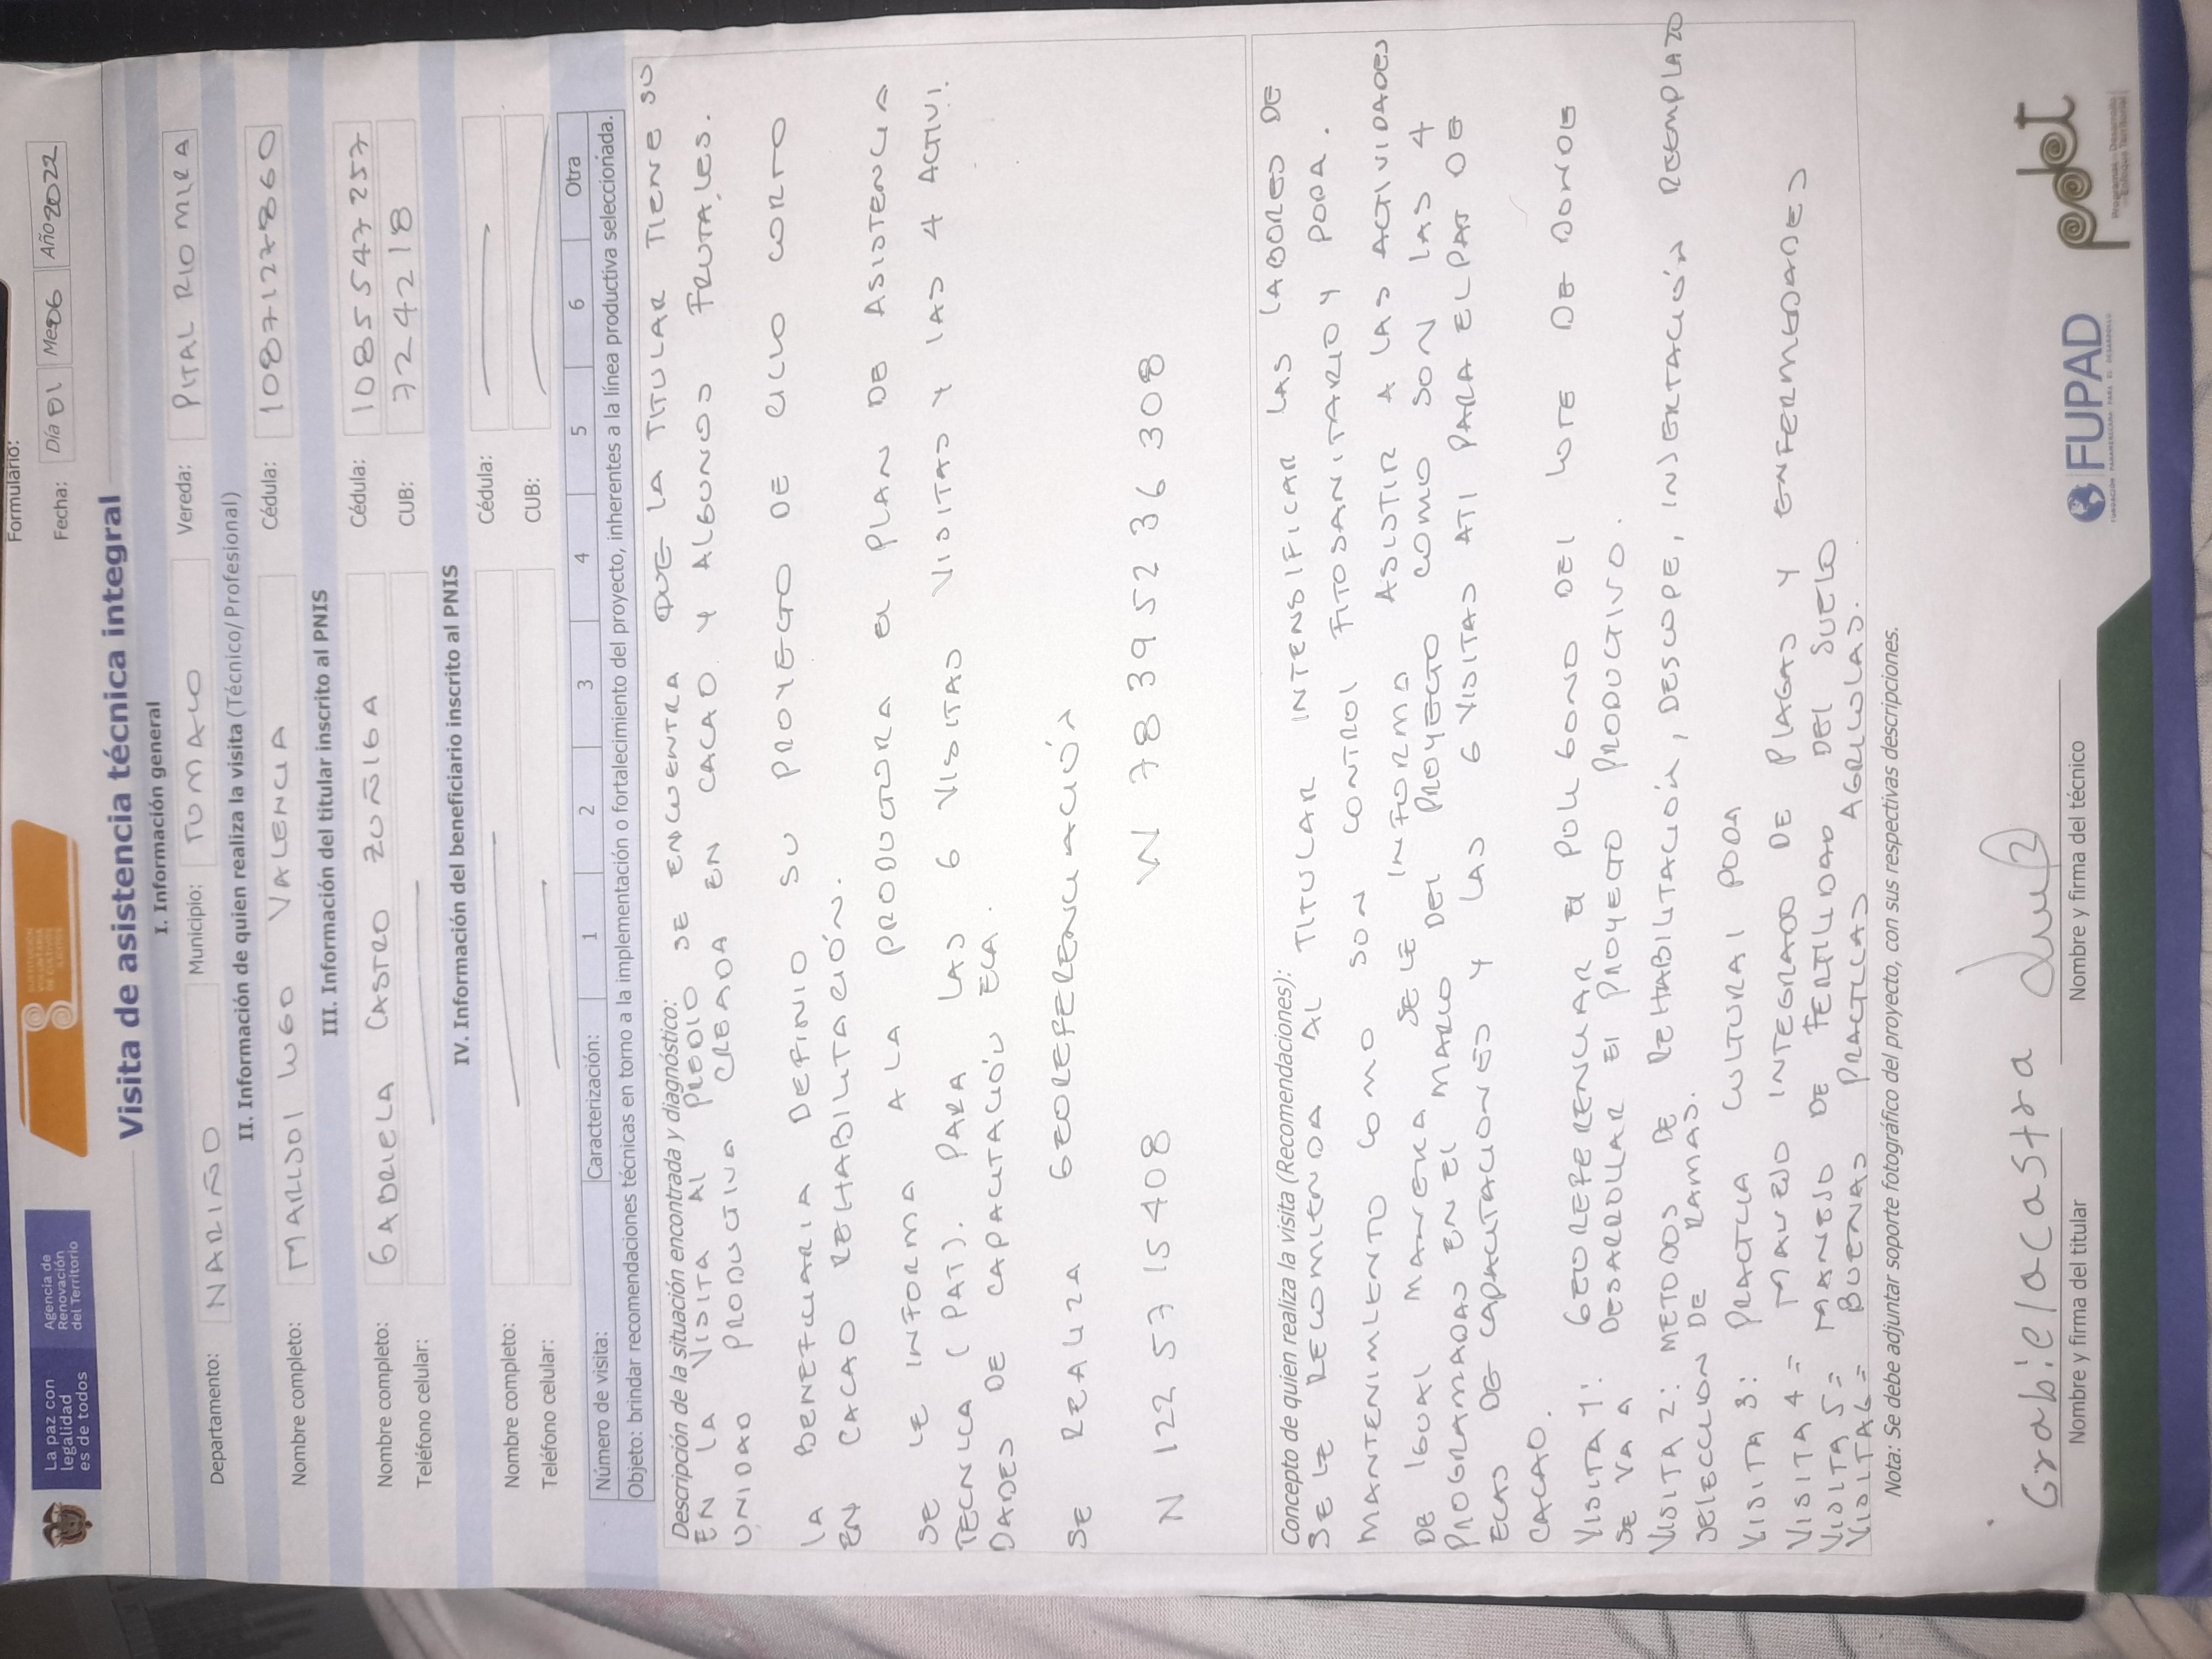 Formulario:
Fecha: Día 01 Mes 06 Año 2022
La paz con
legalidad
es de todos
Agencia de
Renovación
del Territorio
SUSTITUCIÓN
VOLUNTARIA
DE CULTIVOS
ILÍCITOS
Visita de asistencia técnica integral
I. Información general
Departamento: NARIÑO Municipio: TUMACO Vereda: PITAL RIO MIRA
II. Información de quien realiza la visita (Técnico/Profesional)
Nombre completo: MARISOL LUGO VALENCIA Cédula: 1087127860
III. Información del titular inscrito al PNIS
Nombre completo: GABRIELA CASTRO ZUÑIGA Cédula: 1085547257
Teléfono celular: CUB: 724218
IV. Información del beneficiario inscrito al PNIS
Nombre completo: Cédula:
Teléfono celular: CUB:
Número de visita: Caracterización: 1 2 3 4 5 6 Otra
Objeto: brindar recomendaciones técnicas en torno a la implementación o fortalecimiento del proyecto, inherentes a la línea productiva seleccionada.
Descripción de la situación encontrada y diagnóstico:
EN LA VISITA AL PREDIO SE ENCUENTRA QUE LA TITULAR TIENE SU
UNIDAD PRODUCTIVA CREADA EN CACAO Y ALGUNOS FRUTALES.
LA BENEFICIARIA DEFINIO SU PROYECTO DE CICLO CORTO
EN CACAO REHABILITACIÓN.
SE LE INFORMA A LA PRODUCTORA El PLAN DE ASISTENCIA
TECNICA (PAT). PARA LAS 6 VISITAS VISITAS Y LAS 4 ACTIVI.
DADES DE CAPACITACIÓN ECA.
SE REALIZA GEOREFERENCIACIÓN
N 122 57 15408 W 78 3952 36 308
Concepto de quien realiza la visita (Recomendaciones):
SE LE RECOMIENDA AL TITULAR INTENSIFICAR LAS LABORES DE
MANTENIMIENTO COMO SON CONTROL FITOSANITARIO Y PODA.
DE IGUAL MANERA SE LE INFORMA ASISTIR A LAS ACTIVIDADES
PROGRAMADAS EN El MARCO DEl PROYECTO COMO SON LAS 4
ECAS DE CAPACITACIONES Y LAS 6 VISITAS ATI PARA EL PAT DE
CACAO.
VISITA 1: GEOREFERENCIAR El POLIGONO DEl LOTE DE DONDE
SE VA A DESARROLLAR El PROYECTO PRODUCTIVO.
VISITA 2: METODOS DE REHABILITACIÓN, DESCOPE, INJERTACIÓN REEMPLAZO
SELECCION DE RAMAS.
VISITA 3: PRACTICA CULTURAl PODA
VISITA 4= MANEJO INTEGRADO DE PLAGAS Y ENFERMEDADES
VISITA 5= MANEJO DE FERTILIDAD DEL SUELO
VISITA 6= BUENAS PRACTICAS AGRICOLAS.
Nota: Se debe adjuntar soporte fotográfico del proyecto, con sus respectivas descripciones.
Grabielacastra
Nombre y firma del titular
Nombre y firma del técnico
FUPAD
FUNDACIÓN PANAMERICANA PARA EL DESARROLLO
pdet
Programas de Desarrollo
con Enfoque Territorial